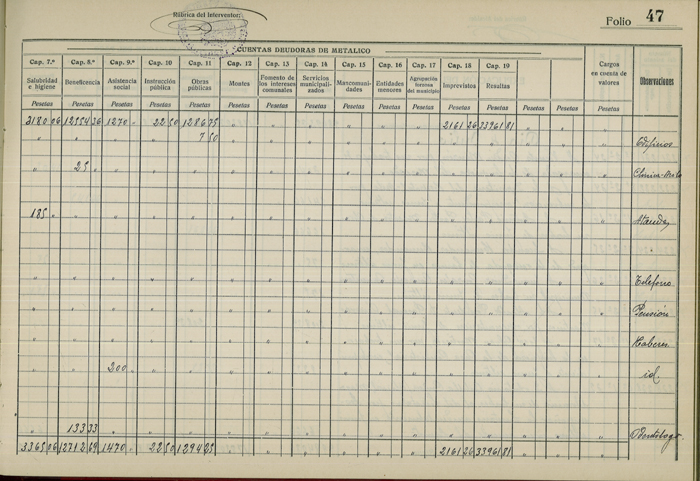 Rúbrica del Interventor:
Folio 47
CUENTAS DEUDORAS DE METALICO
Cap. 7.º Cap. 8.º Cap. 9.º Cap. 10 Cap. 11 Cap. 12 Cap. 13 Cap. 14 Cap. 15 Cap. 16 Cap. 17 Cap. 18 Cap. 19
Salubridad e higiene Beneficencia Asistencia social Instrucción pública Obras públicas Montes Fomento de los intereses comunales Servicios municipalizados Mancomunidades Entidades menores Agrupación forzosa del municipio Imprevistos Resultas Cargos en cuenta de valores Observaciones
Pesetas Pesetas Pesetas Pesetas Pesetas Pesetas Pesetas Pesetas Pesetas Pesetas Pesetas Pesetas Pesetas Pesetas Pesetas Pesetas
3180 06 12554 36 1270 " 22 50 1286 75 " " " " " " 2161 26 3396 1 81 " " "
" " " " 7 50 " " " " " " " " " " "
" 25 " " " " " " " " " " " " " " "
185 " " " " " " " " " " " " " " " " Ataudes
" " " " " " " " " " " " " " " " Teléfono
" " " " " " " " " " " " " " " " Pensión
Haberes
" " 200 " " " " " " " " " " " " " " id.
" 133 33 " " " " " " " " " " " " " " Odontólogo
3365 06 12712 69 1470 " 22 50 1294 25 2161 26 3396 1 81